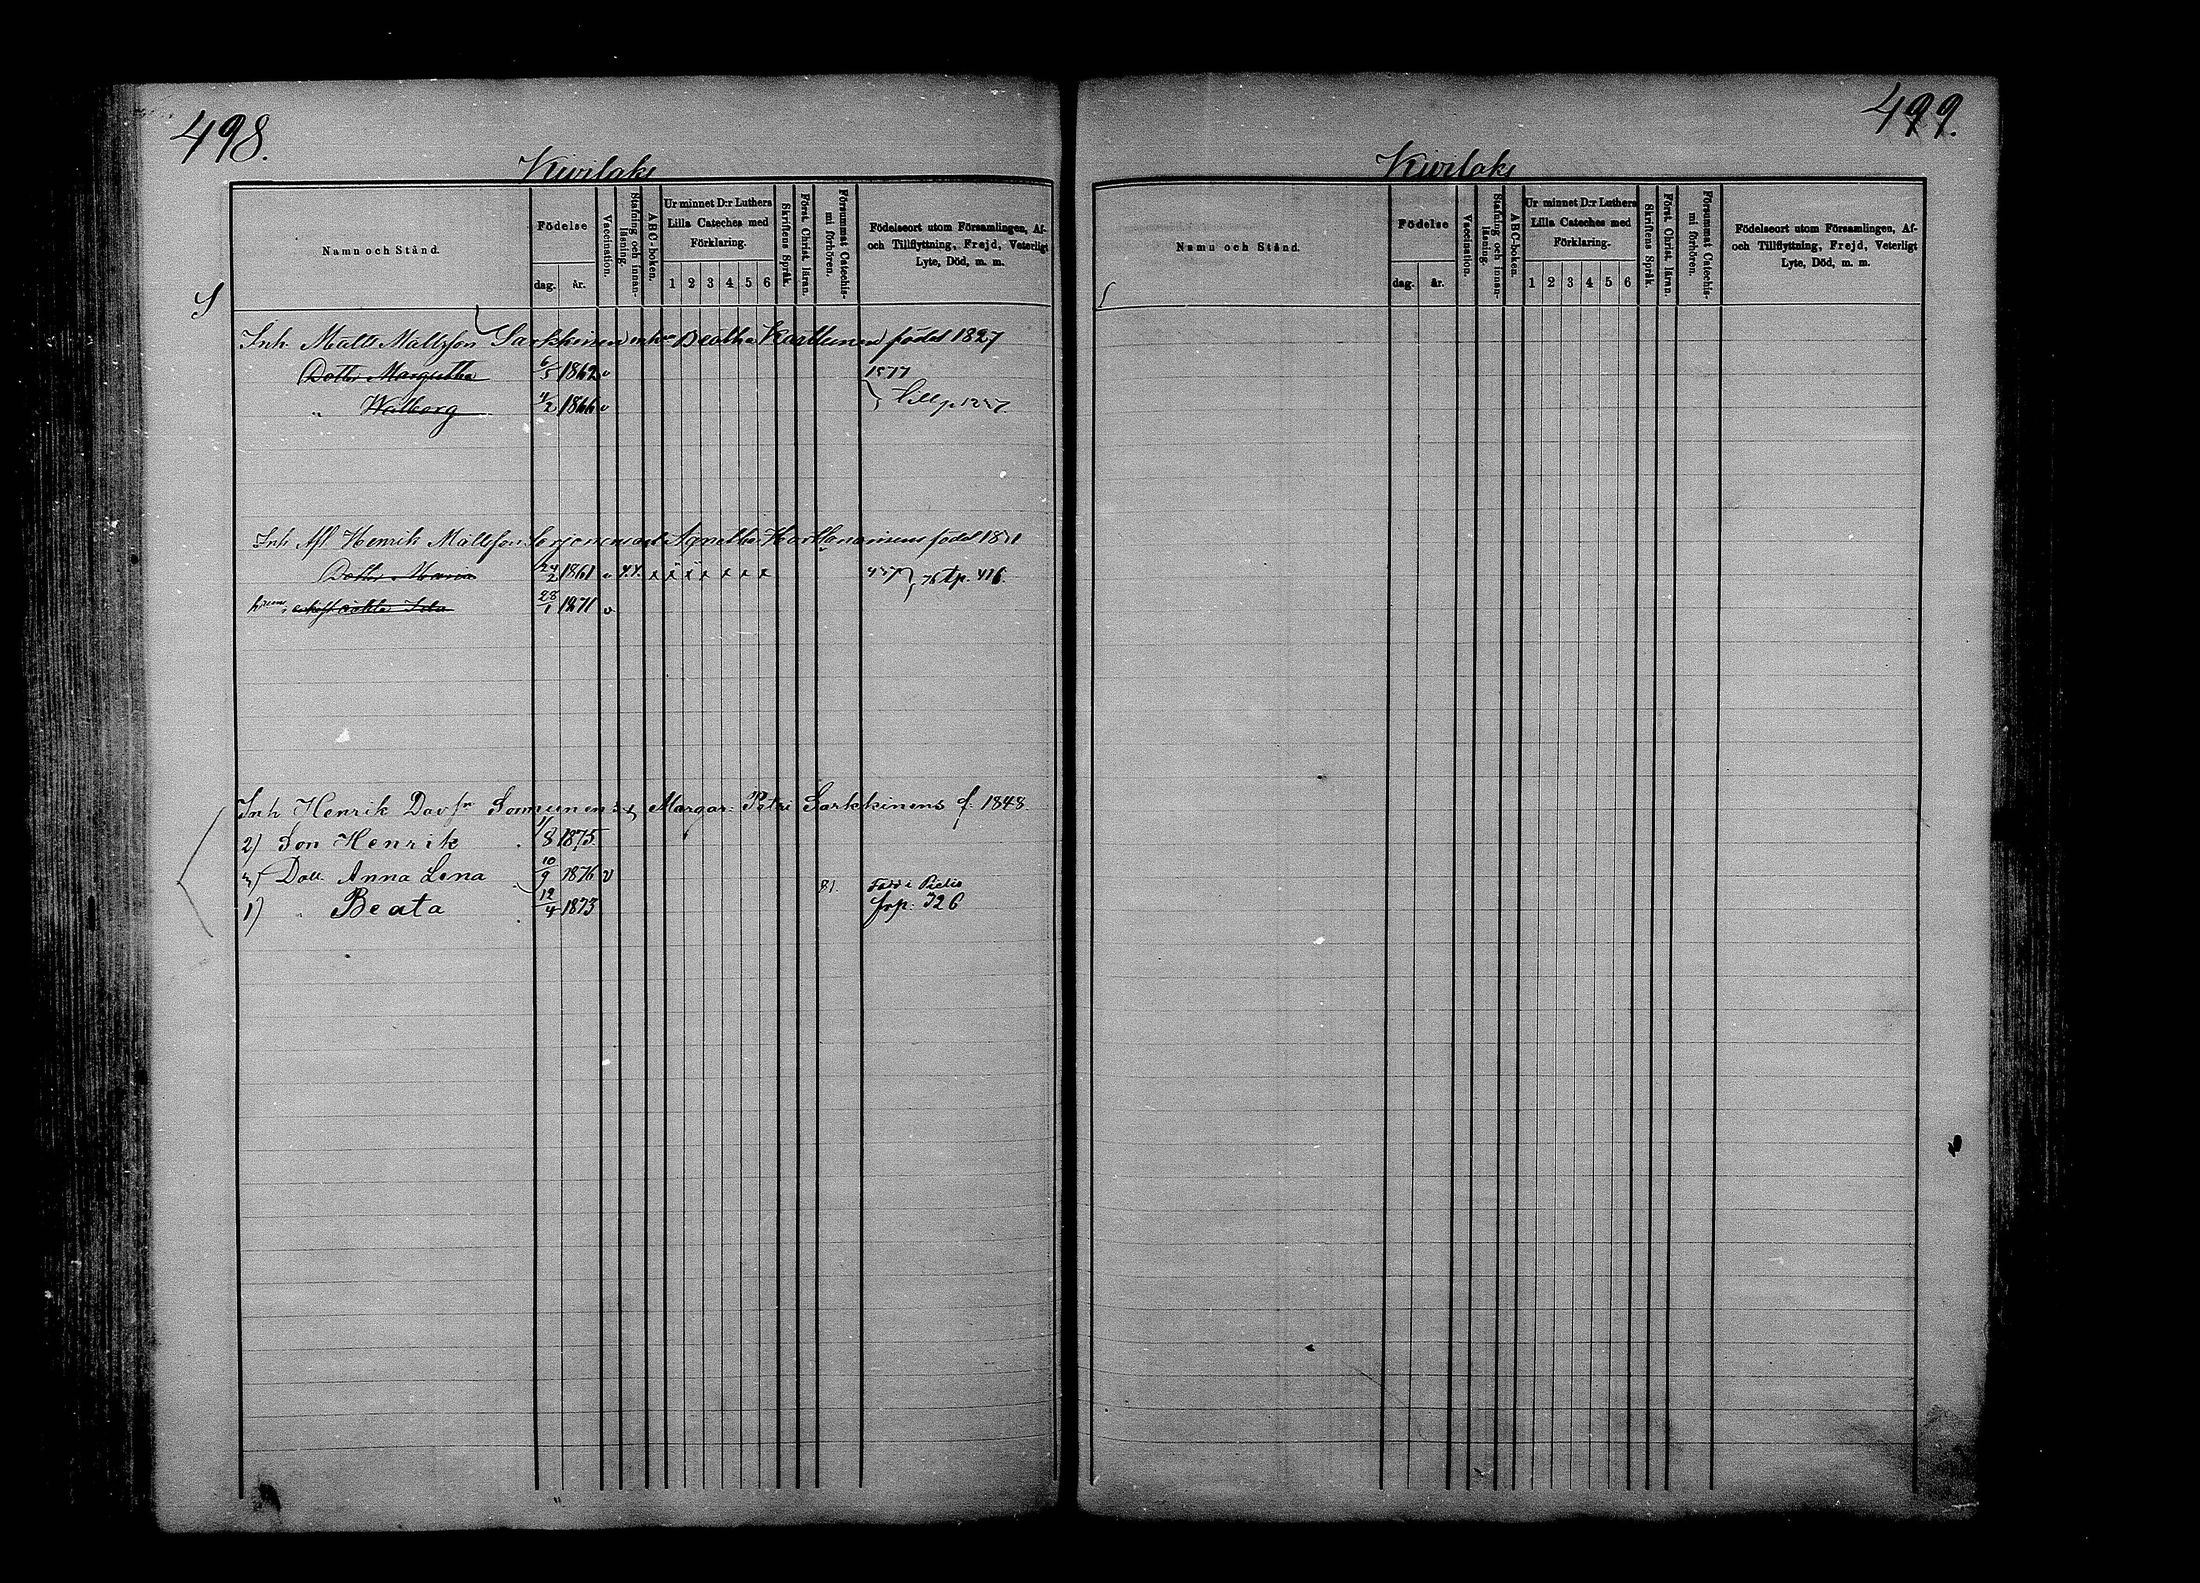 498.
Kivilaks
Namn och Stånd.
Födelse
dag.
år.
Vaccination.
Stafning och innan-
läsning.
ABC-boken.
Ur minnet D:r Luthers
Lilla Cateches med
Förklaring.
1 2 3 4 5 6
Skriftens Språk.
Först. Christ. läran.
Försummat Catechis-
mi förhören.
Födelseort utom Församlingen, Af-
och Tillflyttning, Frejd, Veterligt
Lyte, Död, m. m.
S
Inh. Matts Mattsson Sarkkinen Beatha Karttunen födel 1827
Dottr Margretha 6/5 1862 v 1877
" Walborg 4/2 1866 v
Inh. Afl Henrik Mattsson födel
Dottr Maria 24/2 1861 v x x x x x x x 76 tp. 416
Ida 28/1 1871 v
Inh Henrik Davsn Sormunens Margar: Petri Sarkkinens f. 1848.
2) Son Henrik 11/8 1875
3) Dott. Anna Lena 10/9 1876 v
1) " Beata 12/4 1873 81. Född i Pielis
frp. 326
499.
Kivilaks
Namn och Stånd.
Födelse
dag.
år.
Vaccination.
Stafning och innan-
läsning.
ABC-boken.
Ur minnet D:r Luthers
Lilla Cateches med
Förklaring.
1 2 3 4 5 6
Skriftens Språk.
Först. Christ. läran.
Försummat Catechis-
mi förhören.
Födelseort utom Församlingen, Af-
och Tillflyttning, Frejd, Veterligt
Lyte, Död, m. m.